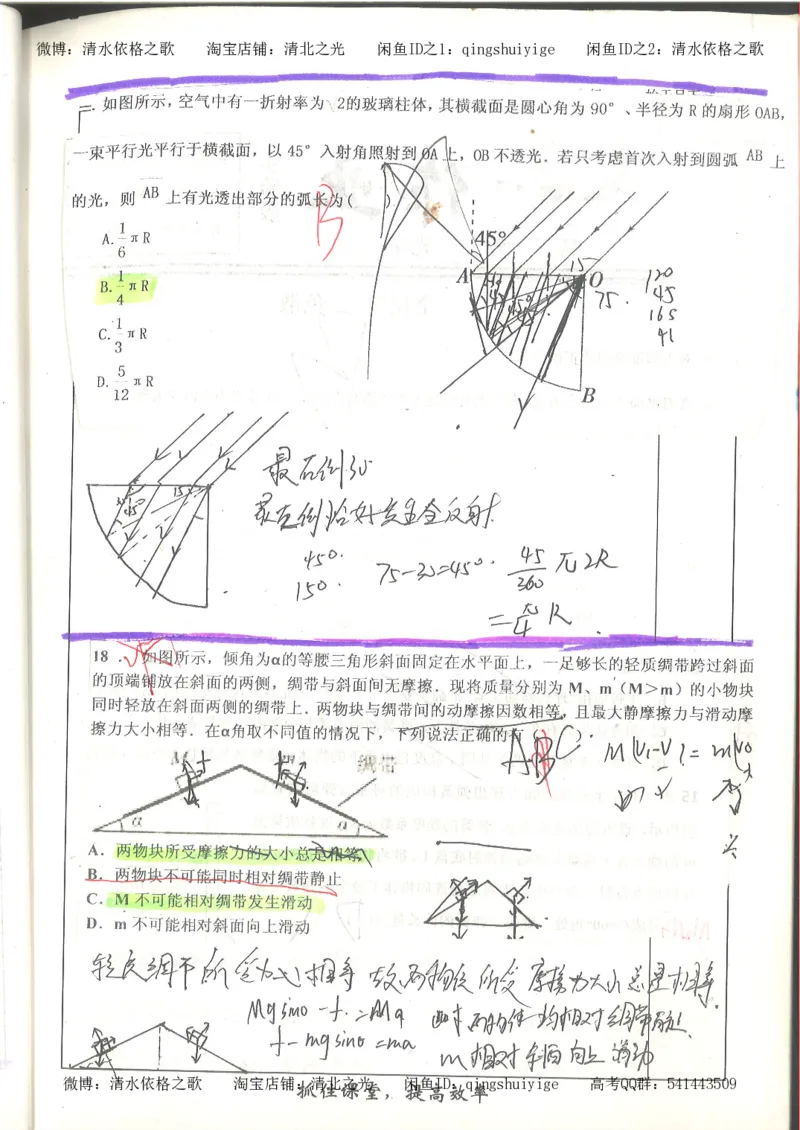 微博：清水依格之歌 淘宝店铺：清北之光 闲鱼ID之1：qingshuiyige 闲鱼ID之2：清水依格之歌
二. 如图所示，空气中有一折射率为 2的玻璃柱体，其横截面是圆心角为 90°、半径为 R 的扇形 OAB,
一束平行光平行于横截面，以 45° 入射角照射到 OA 上，OB 不透光．若只考虑首次入射到圆弧 AB 上
的光，则 AB 上有光透出部分的弧长为( )
B
A. 1/6 πR
B. 1/4 πR
C. 1/3 πR
D. 5/12 πR
45°
A
O
B
15
75.
120
45
165
41
最右侧30
最左侧恰好发生全反射
45°.
15°.
75-30=45°. 45/360 π2R
=π/4 R.
18． 如图所示，倾角为α的等腰三角形斜面固定在水平面上，一足够长的轻质绸带跨过斜面
的顶端铺放在斜面的两侧，绸带与斜面间无摩擦．现将质量分别为 M、m（M>m）的小物块
同时轻放在斜面两侧的绸带上．两物块与绸带间的动摩擦因数相等，且最大静摩擦力与滑动摩
擦力大小相等．在α角取不同值的情况下，下列说法正确的有
ABC
M
绸带
α
α
A．两物块所受摩擦力的大小总是相等
B．两物块不可能同时相对绸带静止
C．M 不可能相对绸带发生滑动
D．m 不可能相对斜面向上滑动
轻质绸带所受力相等 故两物体所受摩擦力大小总是相等.
Mgsinα-f.=Ma
f-mgsinα=ma
m相对斜面向上滑动
微博：清水依格之歌 淘宝店铺：清北之光 闲鱼ID：qingshuiyige 高考QQ群：541443509
抓住课堂，提高效率